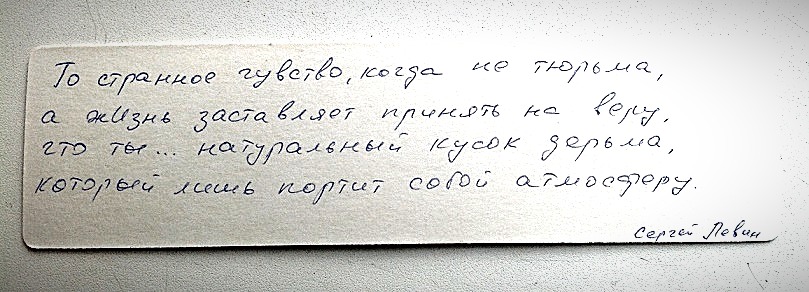 То странное чувство, когда не тюрьма,
а жизнь заставляет принять на веру,
что ты... натуральный кусок дерьма,
который лишь портит собой атмосферу.
Сергей Левин